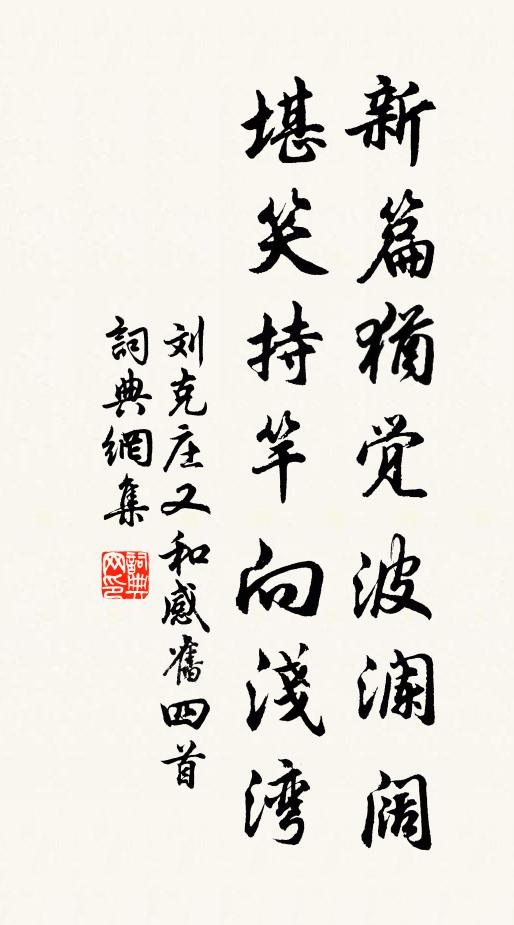 新篇犹觉波澜阔
堪笑持竿向浅湾
刘克庄又和感旧四首
詞典網集
詞典网印